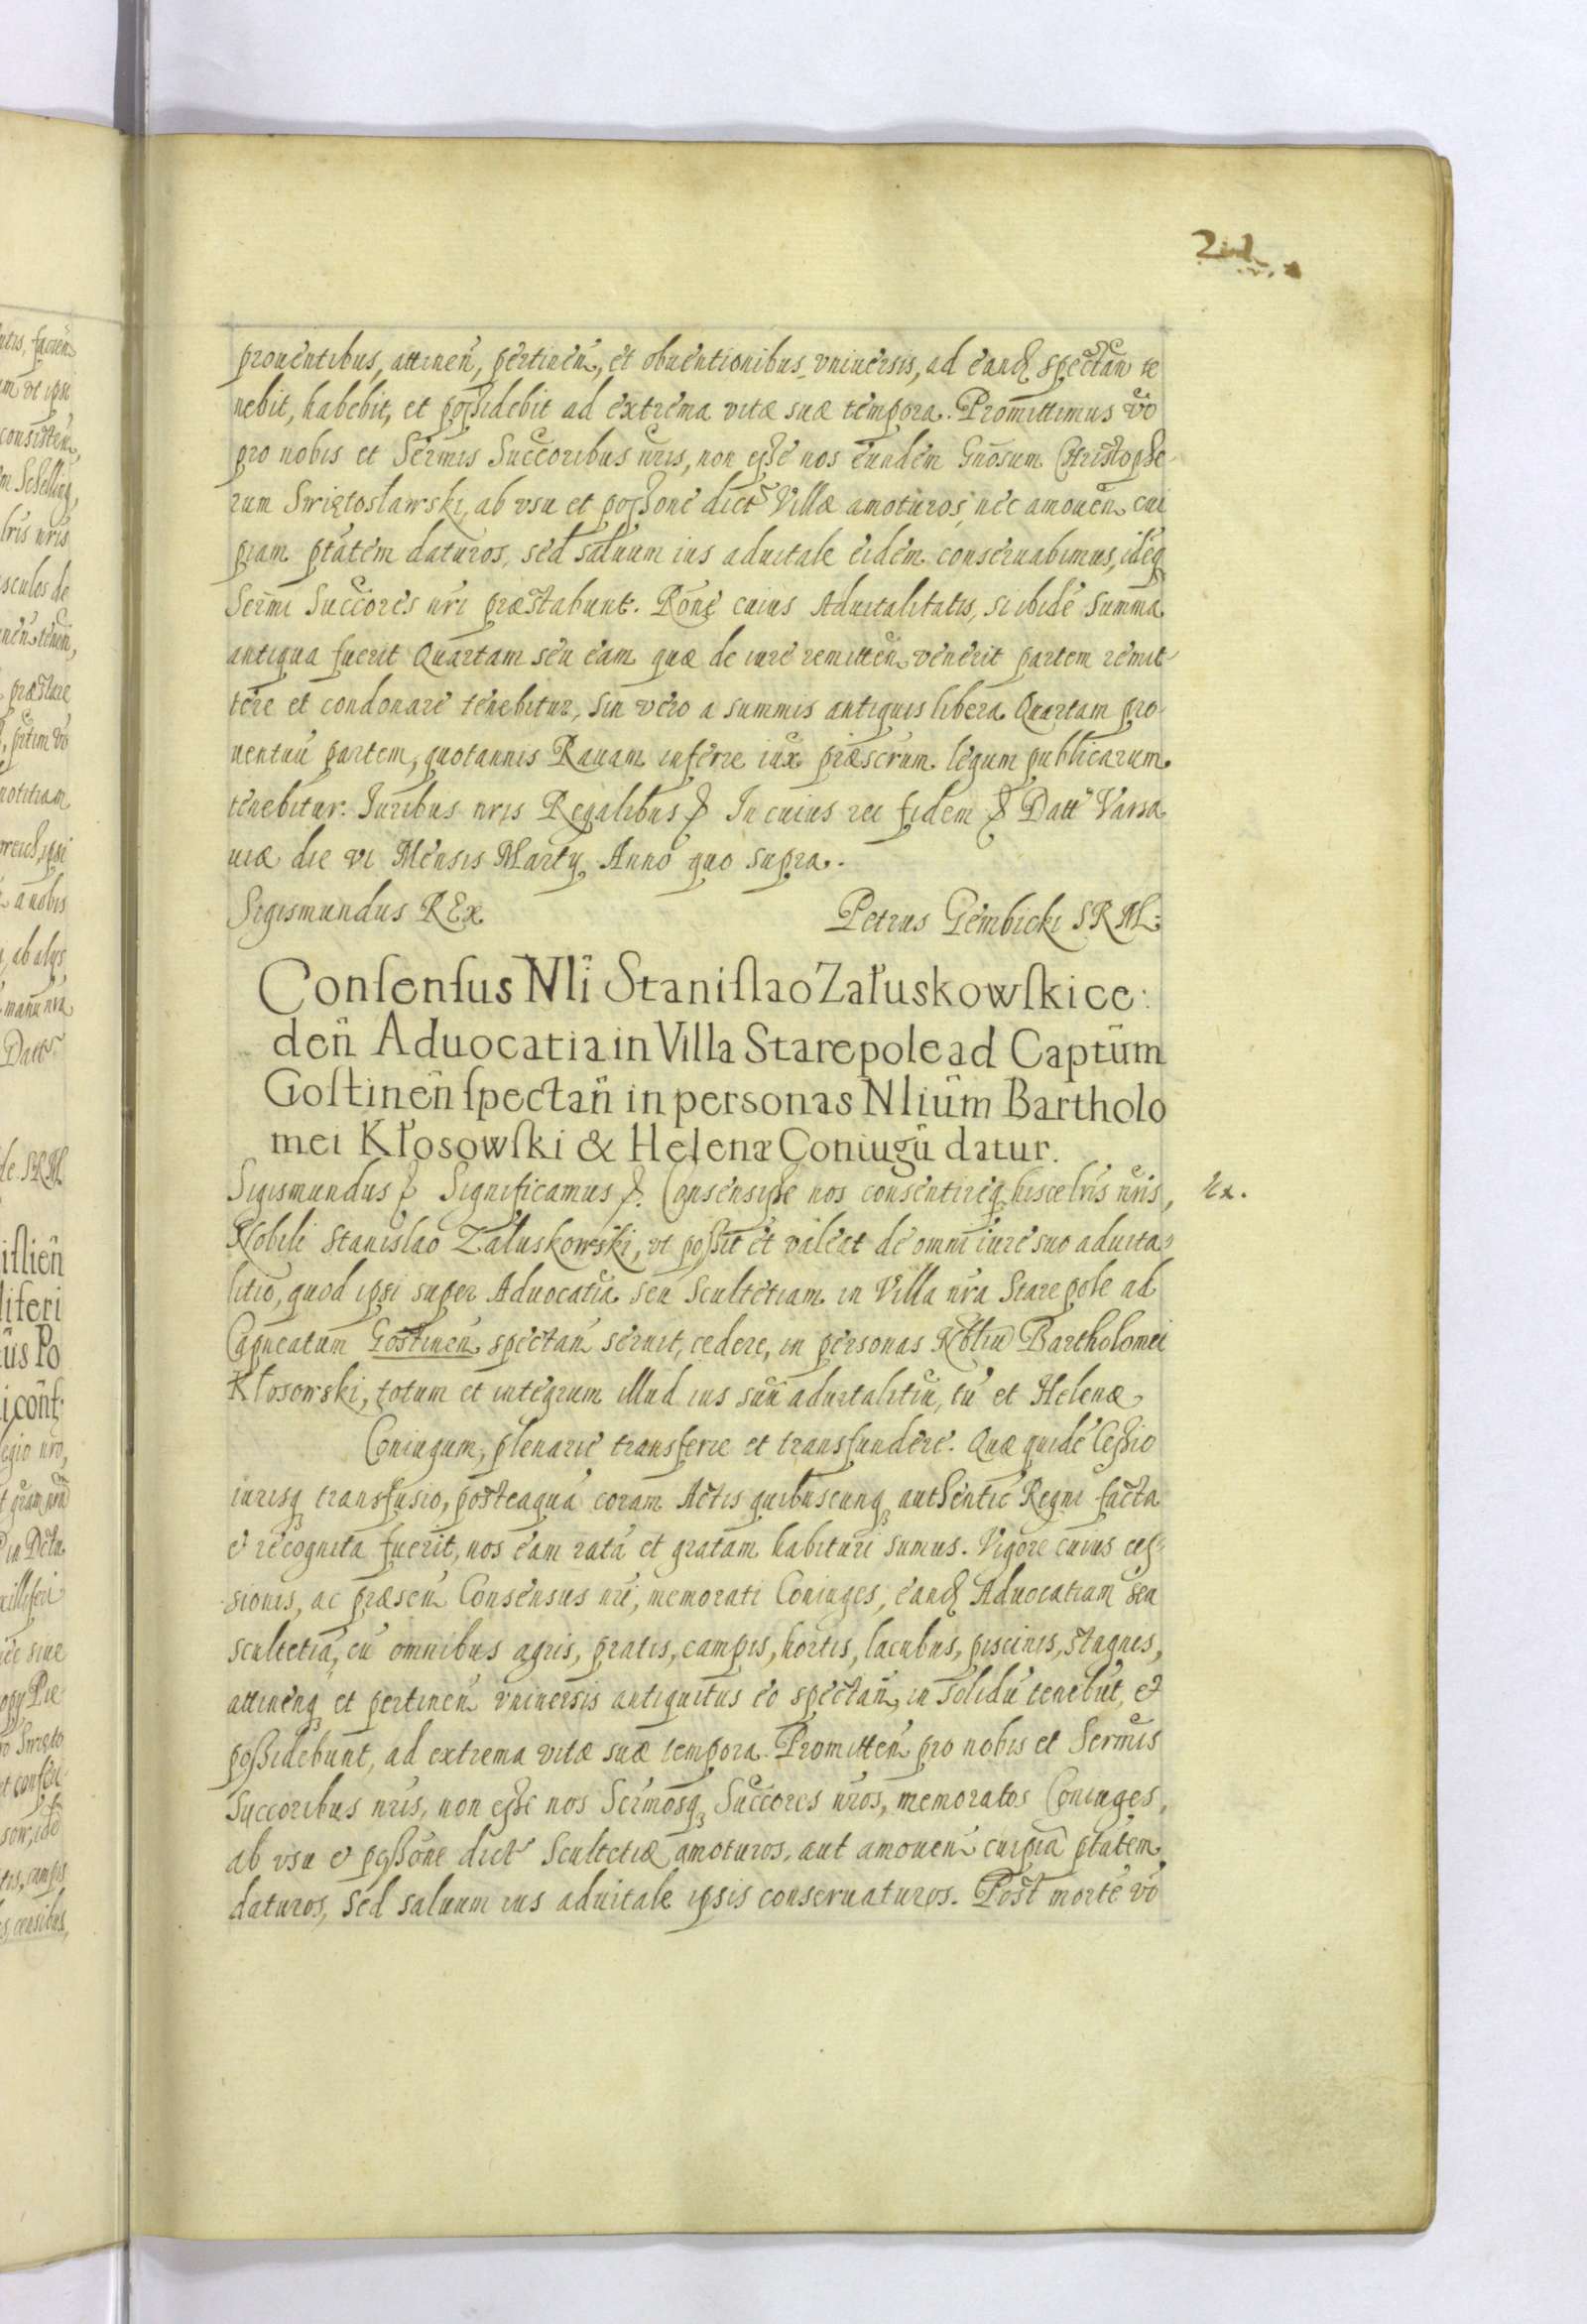 prouentibus, attineñ, pertineñ, et obuentionibus vniuersis, ad eandẽ spectañ te
nebit, habebit, et possidebit ad extrema vitæ suæ tempora. Promittimus vo
pro nobis et Sermis Succoribus nris, non esse nos eundem Gnosum Christophe-
rum Swiętosławski, ab vsu et possone dictę Villæ amoturos, nec amoueñ cui
piam ptatem daturos, sed saluum ius aduitale eidem conseruabimus, idēq
Sermi Succores nri præstabunt. Rone cuius Aduitalitatis, si ibidē summa
antiqua fuerit Quartam seu eam quæ de iure remitteñ venerit partem remit-
tere et condonare tenebitur, sin vero a summis antiquis libera Quartam pro
uentuū partem, quotannis Rauam inferre iux præscrum legum publicarum
tenebitur. Iuribus nris Regalibus & In cuius rei fidem & Datt Varsa
uiæ die vi Mensis Martij Anno quo supra.
Sigismundus REx Petrus Gembicki SRM:
Consensus Nli Stanislao Załuskowski ce:
deñ Aduocatia in Villa Starepole ad Captūm
Gostineñ spectañ in personas Nliūm Bartholo
mei Kłosowski & Helenæ Coniugū datur.
Sigismundus & Significamus & Consensisse nos consentireq hisce lris nris, Rx.
Nobili Stanislao Załuskowski, vt possit et valeat de omni iure suo aduita-
litio, quod ipsi super Aduocatia seu Scultetiam in Villa nra Starepole ad
Capneatum Gostineñ spectañ seruit, cedere, in personas Nobliū Bartholomei
Kłosowski, totum et integrum illud ius suū aduitalitiū, tū et Helenæ
Coniugum, plenarie transferre et transfundere. Quæ quidē Cessio
iurisq transfusio, posteaquā coram Actis quibuscunq authentic Regni facta
& recognita fuerit, nos eam ratā et gratam habituri sumus. Vigore cuius ces-
sionis, ac præseñ Consensus nri, memorati Coniuges, eandẽ Aduocatiam seu
scultetiā, cū omnibus agris, pratis, campis, hortis, lacubus, piscinis, stagnis,
attineñq et pertineñ vniuersis antiquitus eo spectañ, in solidū tenebūt, &
possidebunt, ad extrema vitæ suæ tempora. Promitteñ pro nobis et Sermis
Succoribus nris, non esse nos Sermosq Succores nros, memoratos Coniuges,
ab vsu & possone dictę Scultetiæ amoturos, aut amoueñ cuipiā ptatem
daturos, sed saluum ius aduitale ipsis conseruaturos. Post mortē vo